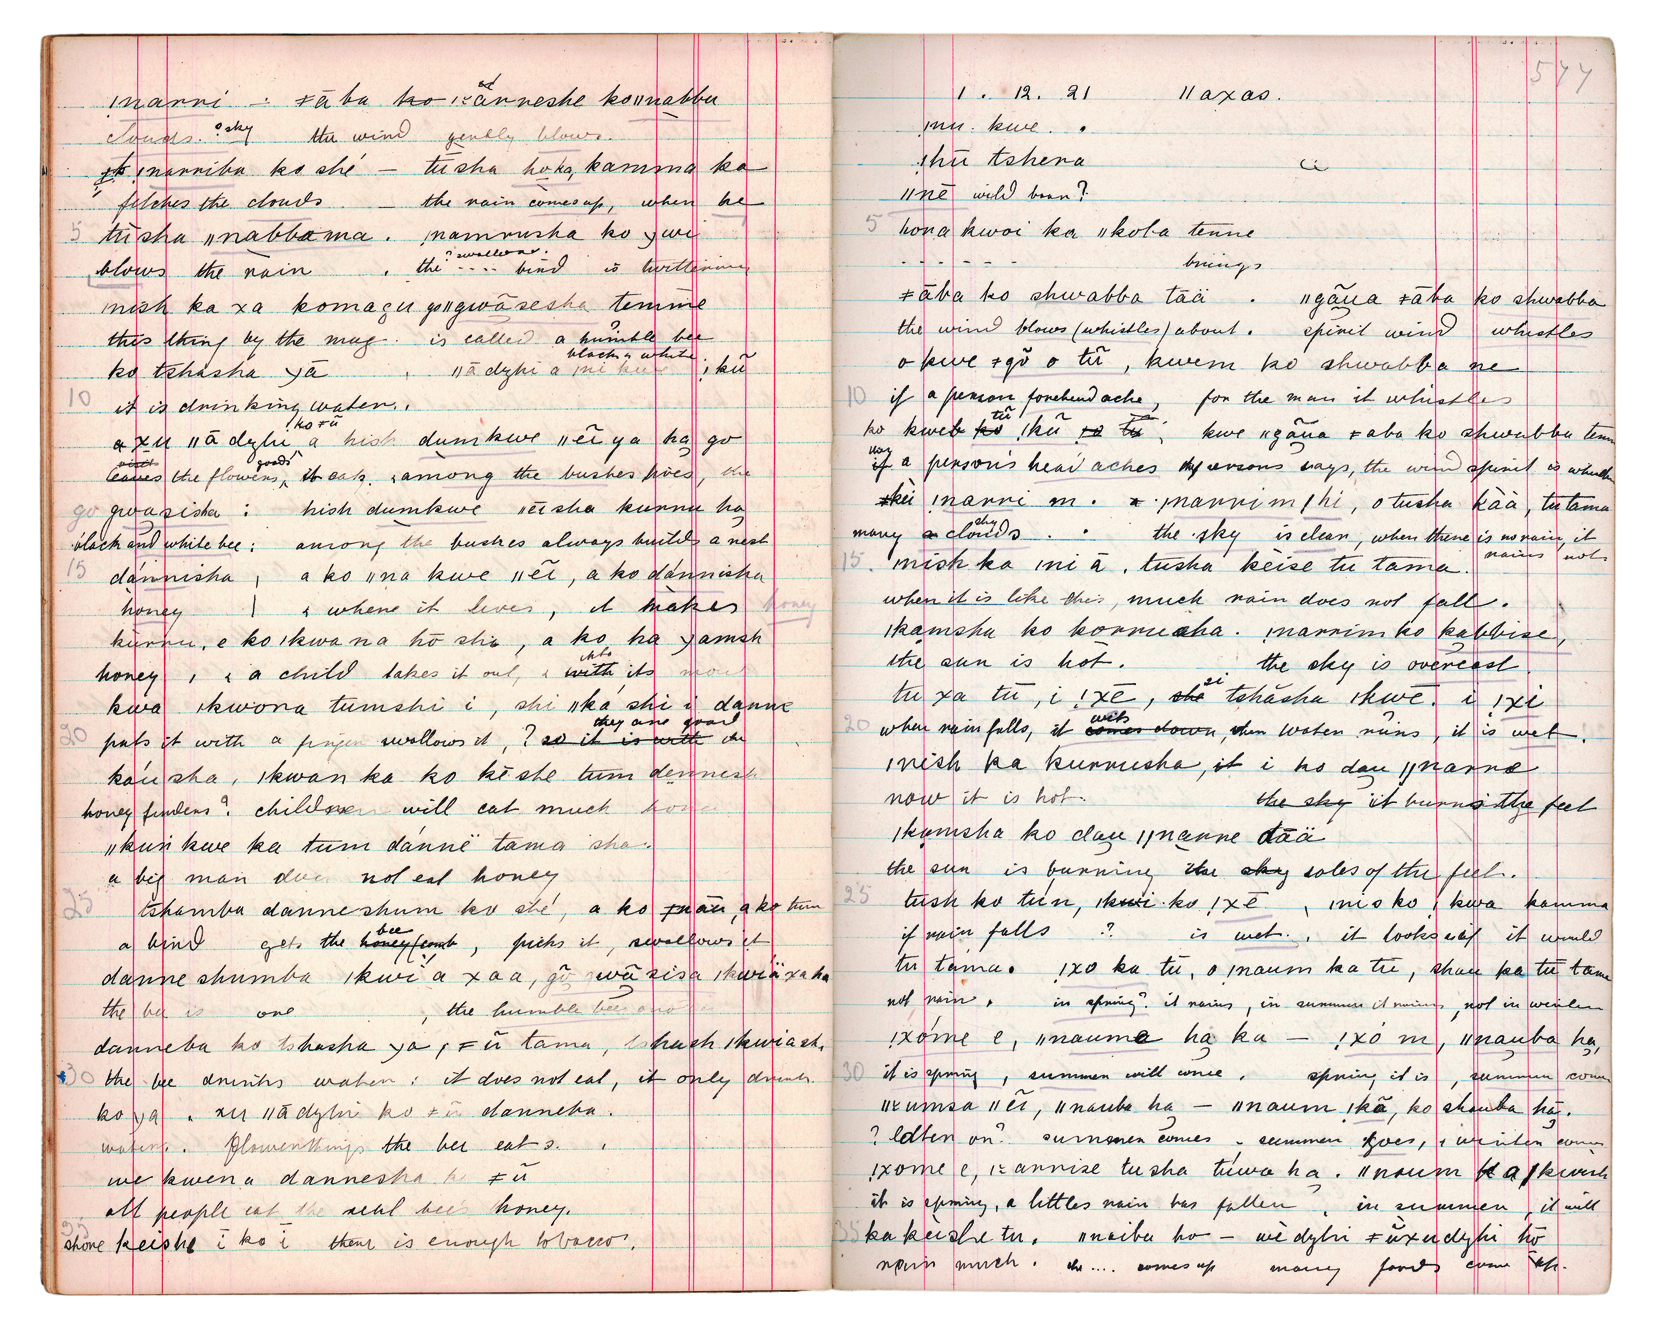 ǀnarri – ǂāba ko ǀkānneshe ko ǁnabbu
clouds. ? sky the wind gently blows.
ǀnarriba ko shé – tūsha hoka, kamma ka
fetches the clouds – the rain comes up, when he
5 tūsha ǁnabbama. ǀnamrusha ko ɣwi
blows the rain . the ? swallow .... bird is twittering
mish ka xa komagu go ǁgwāsesha temme
this thing by the mug. is called a humble bee
ko tshāsha ɣā , ǁādyhi a black & white ; kū
10 it is drinking water.
a xu ǁādyhi ko ǂū a hish dumkwe ǁēi ya ha go
leaves visits the flowers, goods, it eats. among the bushes lives, the
go gwasisha : hish dumkwe ǁēisha kurru ha
black and white bee : among the bushes always builds a nest
15 dánnisha , a ko ǁna kwe ǁēi, a ko dánnisha
honey & where it lives, it makes honey
kurru, e ko ǀkwa na hō sha, a ko ha ɣamsh
honey , & a child takes it out, & into with its mou
kwa ǀkwona tumshi i, shi ǁka shi i danne
20 puts it with a finger swallows it, ? they are good so it is with the
káusha, ǀkwan ka ko kēshe tum dennesh
honey finders? children will eat much hone
ǁkuri kwe ka tum dánnë tama sha.
a big man does not eat honey
25 tshamba danneshum ko shé, a ko ǂnāu, a ko tum
a bird gets the bee honeycomb, picks it, swallows it
danneshumba ǀkwi a xaa, gō gwāsisa ǀkwiä xa ha
the bee is one , the humble bee ano
danneba ko tshasha ɣa, ǂū tama, tshash ǀkwiash,
30 the bee drinks water : it does not eat, it only drinks
ko ɣa . xu ǁādyhi ko ǂū danneba.
water. Flowerthings the bee eats.
we kwena dannesha k ǂū
all people eat the real bee's honey.
35 shore keishe ī ko ī there is enough tobacco.
577
1. 12. 21 ǁaxas.
ǀnu. kwe.
ǀhū tshera
ǁnē wild boar?
5 hora kwoi ka ǁkoba tenne
- - - - - - brings
ǂāba ko shwabba tää . ǁgāua ǂāba ko shwabba
the wind blows (whistles) about. spirit wind whistles
o kwe ǂgō o tū, kwem ko shwabba ne
10 if a person forehead ache, for the man it whistles
ko kweb ko tū ǃkū ; kwe ǁgāua ǂaba ko shwabba tenn
if a person's head aches persons says, the wind spirit is whistle
ǂkēi ǀnarri m. ǀnarrim ǀhi, o tusha kāä, tutama
many clouds sky . the sky is clean, when there is no rain, it rains not
15. mish ka ǀni ā, tusha kēise tu tama.
when it is like this, much rain does not fall.
ǀkamsha ko korrusha. ǀnarrim ko kabbise,
the sun is hot. the sky is overcast.
tu xa tū, i ǃxē, she zi tshāsha ǀkwē. i ǃxi
20 when rain falls, it comes down wets, then water runs, it is wet.
ǀnish ka kurrusha, it i ko dau ǁnarra
now it is hot. the sky it burns the feet
ǀkamsha ko dau ǁnanne tää
the sun is burning the sky soles of the feet.
25 tush ko tún, ǀkwi ko ǃxē , ǀnis ko ǀkwa kamma
if rain falls ? is wet. , it looks as if it would
tu tama. ǃxo ka tū, o ǀnaum ka tu, shau ka tū tama
not rain, in spring? it rains, in summer it rains, not in winter
ǃxóme e, ǁnauma ha ka – ǃxó m, ǁnauba ha,
30 it is spring, summer will come. spring it is, summer comes
ǁkumsa ǁēi, ǁnauba ha – ǁnaum ǀkā, ko shauba hā.
? later on? summer comes . summer goes, & winter comes
ǃxome e, ǀkannise tusha túwa ha. ǁnaum ka ǀkwish
it is spring, a little rain has fallen, in summer, it will
35 ka kēishe tu. ǁnaiba ho – wēdyhi ǂūxudyhi hō
rain much. the .... comes up many foods come up.